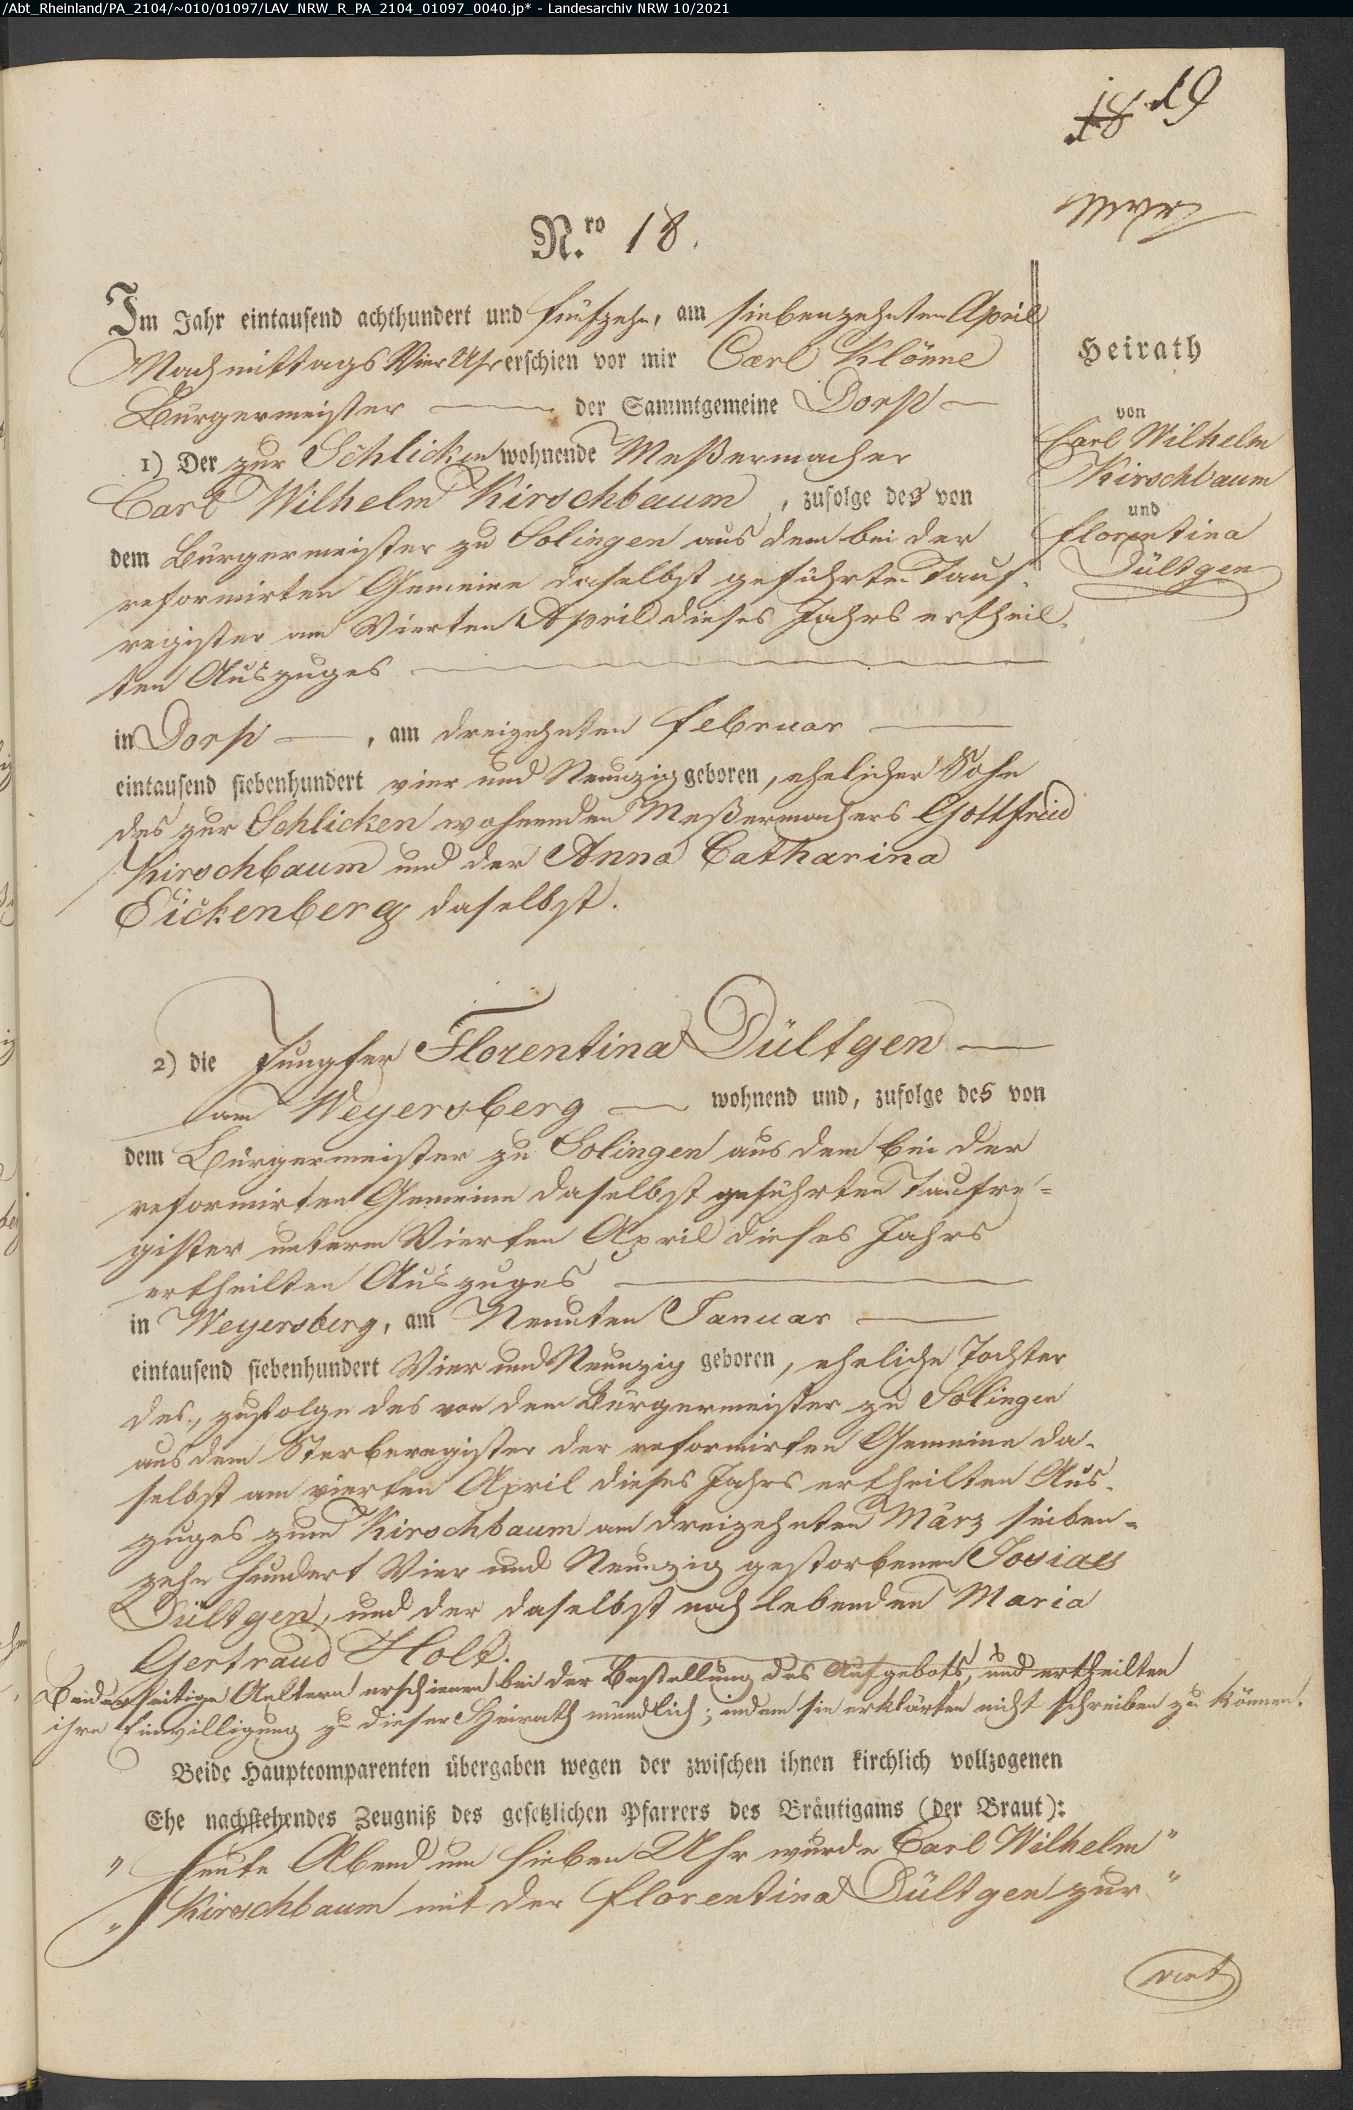 /Abt_Rheinland/PA_2104/~010/01097/LAV_NRW_R_PA_2104_01097_0040.jp* - Landesarchiv NRW 10/2021
18 19
N.ro 18.
Im Jahr eintausend achthundert und fünfzehn, am siebenzehnten April
Nachmittags Vier Uhr erschien vor mir Carl Klönne
Bürgermeister der Sammtgemeine Dorp
1) Der zur Schlicken wohnende Meßermacher
Carl Wilhelm Kirschbaum, zufolge des von
dem Bürgermeister zu Solingen aus dem bei der
reformirten Gemeine daselbst geführten Tauf-
register am Vierten April dieses Jahrs ertheil-
ten Auszuges
in Dorp, am dreizehnten Februar
eintausend siebenhundert vier und Neunzig geboren, ehelicher Sohn
des zur Schlicken wohnenden Meßermachers Gottfried
Kirschbaum und der Anna Catharina
Eickenberg daselbst.
Heirath
von
Carl Wilhelm
Kirschbaum
und
Florentina
Dültgen
2) die Jungfer Florentina Dültgen
am Weyersberg wohnend und, zufolge des von
dem Bürgermeister zu Solingen aus dem bei der
reformirten Gemeine daselbst geführten Taufre=
gister unterm Vierten April dieses Jahrs
ertheilten Auszuges
in Weyersberg, am Neunten Januar
eintausend siebenhundert Vier und Neunzig geboren, eheliche Tochter
des, zufolge des von dem Bürgermeister zu Solingen
aus dem Sterberegister der reformirten Gemeine da-
selbst am vierten April dieses Jahrs ertheilten Aus-
zuges zum Kirschbaum am dreizehnten März sieben-
zehn hundert Vier und Neunzig gestorbenen Josias
Dültgen, und der daselbst noch lebenden Maria
Gertraud Holt.
Beiderseitige Aeltern erschienen bei der Bestellung des Aufgebots, und ertheilten
ihre Einwilligung zu dieser Heirath mündlich; indem sie erklärten nicht schreiben zu können.
Beide Hauptcomparenten übergaben wegen der zwischen ihnen kirchlich vollzogenen
Ehe nachstehendes Zeugniß des gesetzlichen Pfarrers des Bräutigams (der Braut):
" Heute Abend um sieben Uhr wurde Carl Wilhelm "
" Kirschbaum mit der Florentina Dültgen zur "
vert